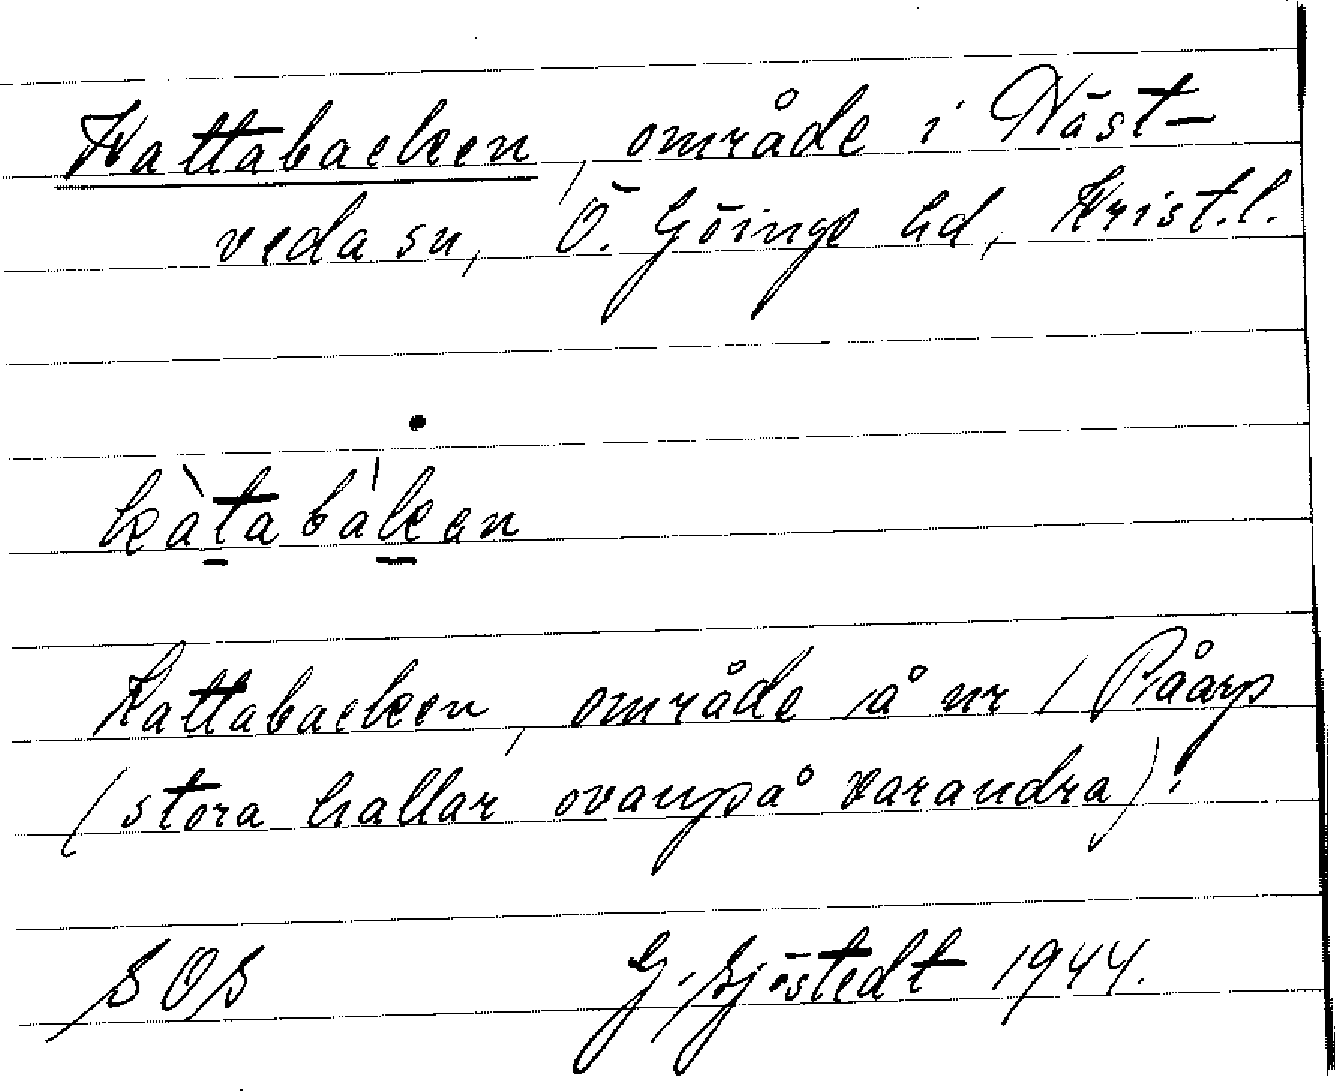 Kattabacken, område i Näst-
veda sn, Ö. Göinge hd, Krist.l.
kàtabàkan
Kattabacken, område å nr 1 Råarp
(stora hallar ovanpå varandra).
SOS G. Sjöstedt 1944.